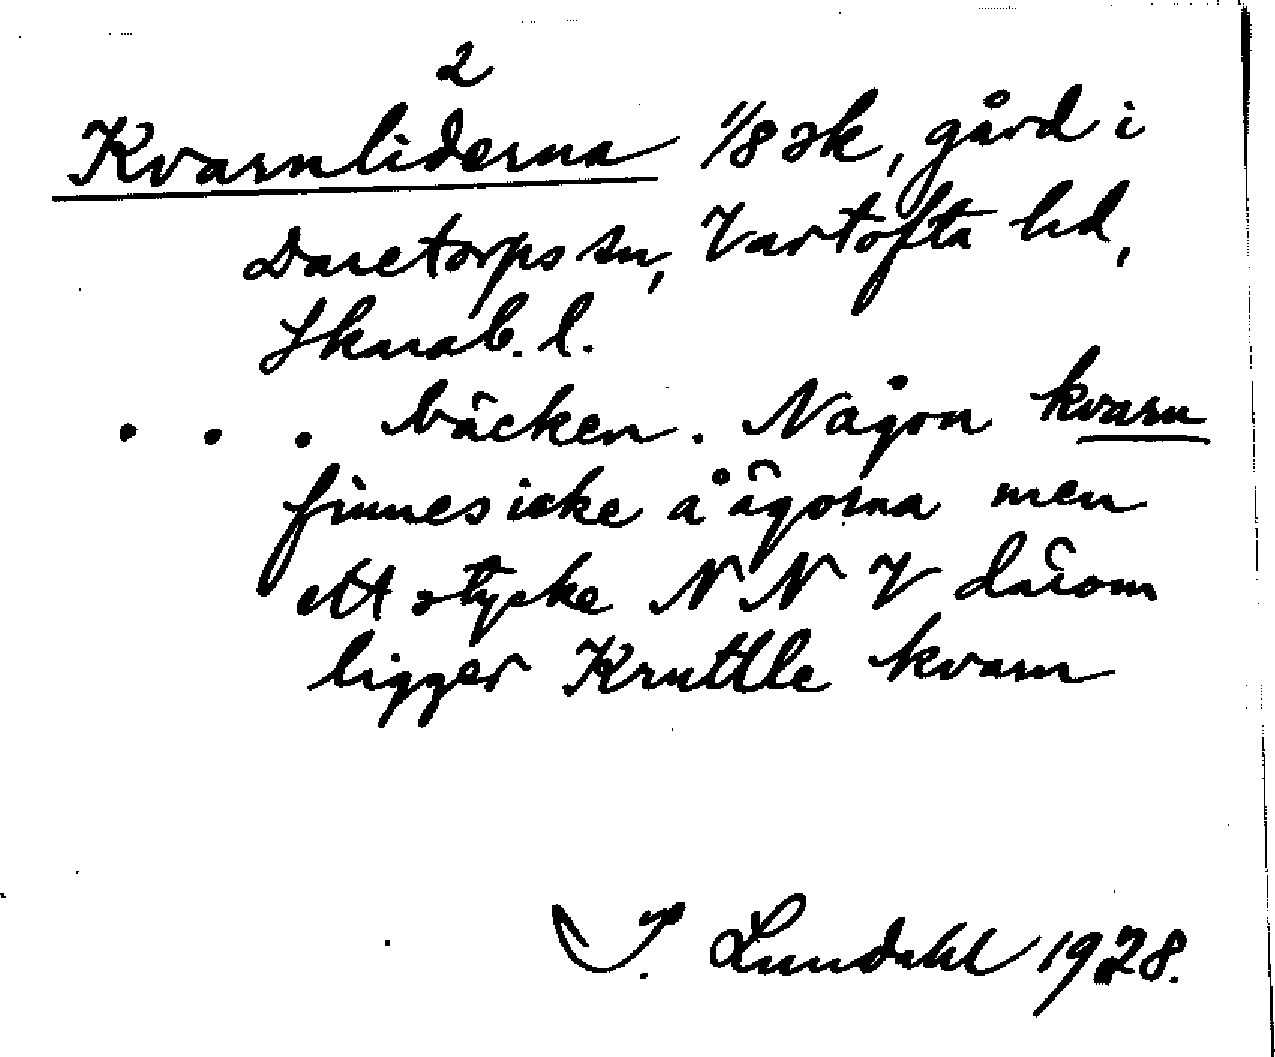 2
Kvarnliderna 1/8 sk, gård i
Daretorps sn, Vartofta hd,
Skarab. l.
. . . bäcken. Någon kvarn
finnes icke å ägorna men
ett stycke N N V därom
ligger Kruttle kvarn
I. Lundahl 1928.